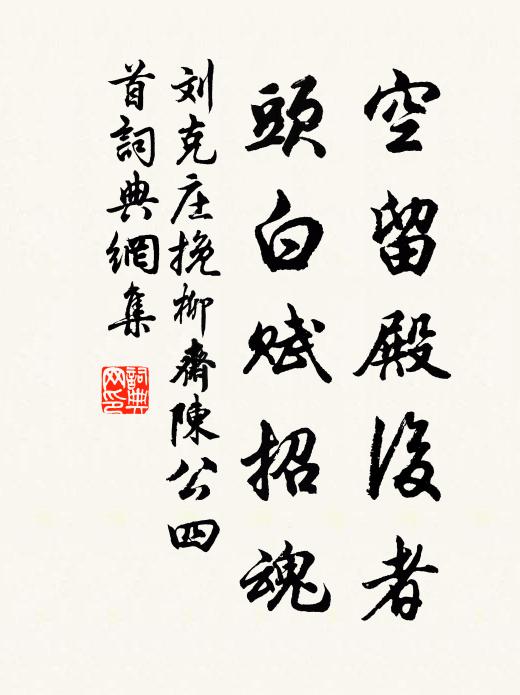 空留殿後者
頭白賦招魂
刘克庄挽柳齋陳公四
首詞典網集
詞典
网印